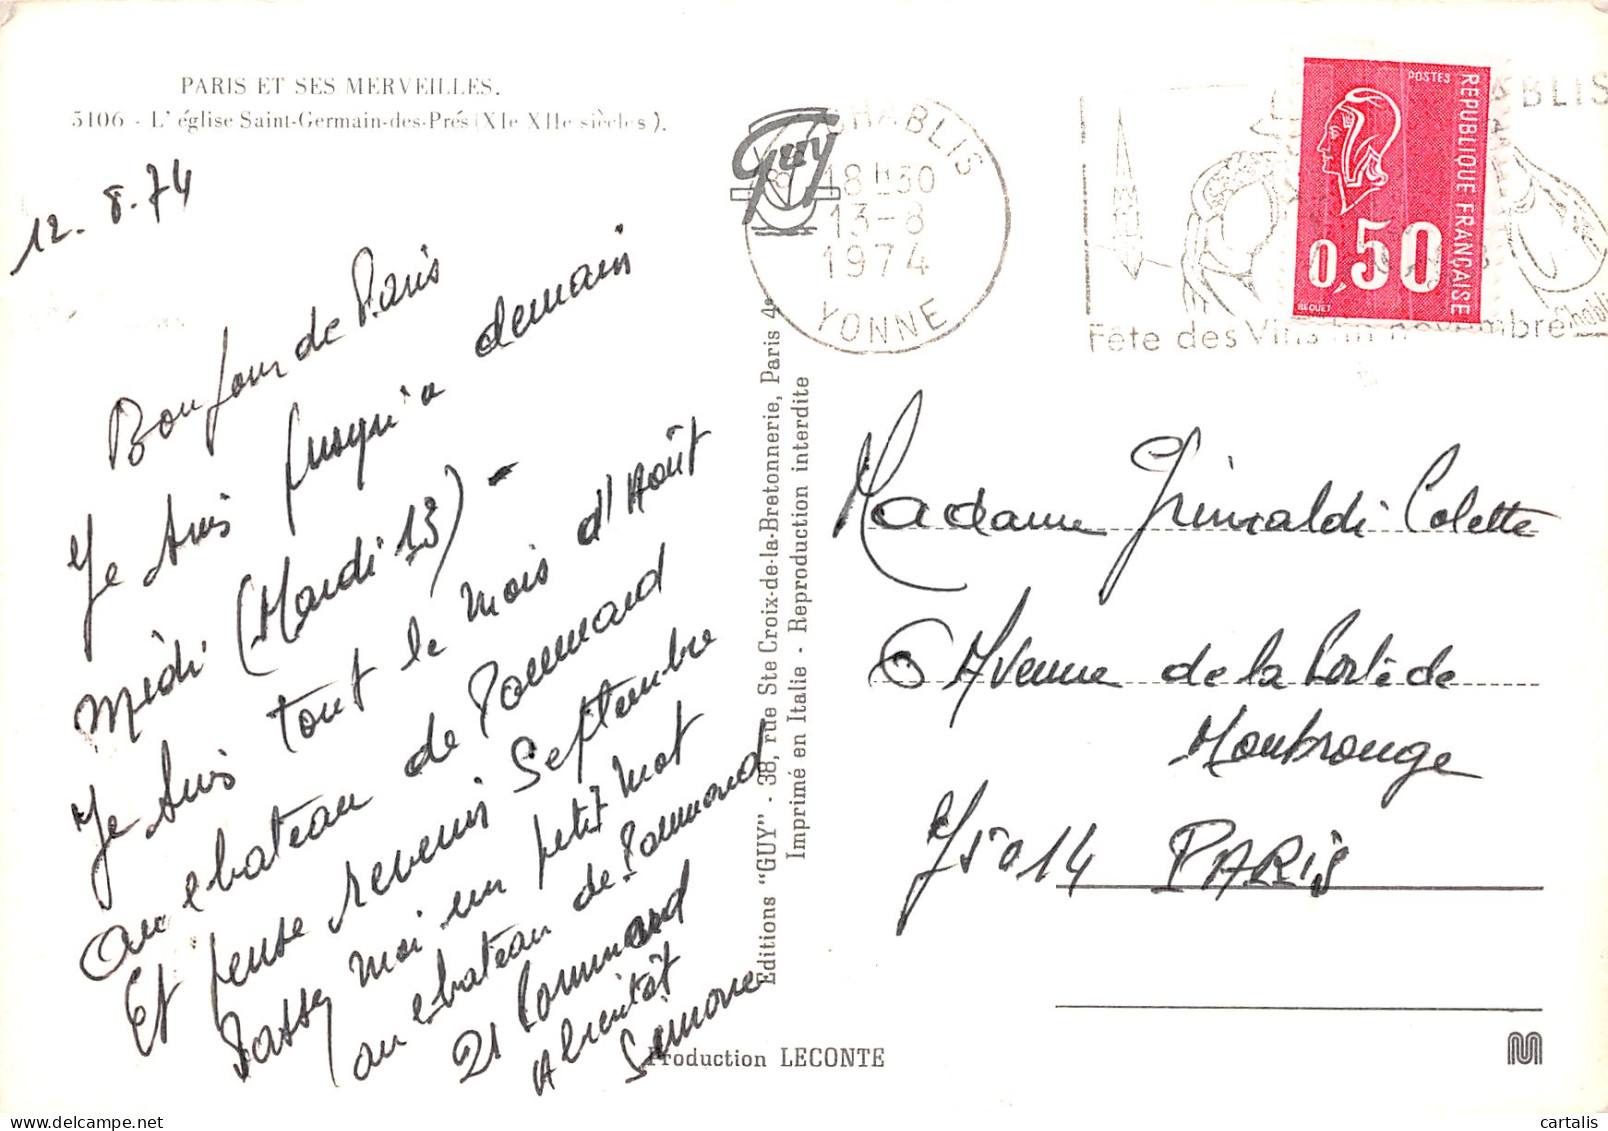 PARIS ET SES MERVEILLES.
5106 - L'église Saint-Germain-des-Prés (XIe XIIe siècles).
12.8.74
Bonjour de Paris
Je suis jusqu'a demain
midi (Mardi 13) -
Je suis tout le mois d'Août
au chateau de Pommard
Et pense revenir Septembre
Passez moi un petit mot
au chateau de Pommard
21 Pommard
A bientôt
Simone
Editions "GUY" - 38, rue Ste Croix-de-la-Bretonnerie, Paris 4e
Imprimé en Italie - Reproduction interdite
Production LECONTE
Guy
CHABLIS
18H30
13-8
1974
YONNE
ABLIS
Fête des Vins fin novembre
Chablis
POSTES
REPUBLIQUE FRANÇAISE
0,50
BEQUET
Madame Grimaldi Colette
6 Avenue de la Porte de
Montrouge
75014 PARIS
M
cartalis